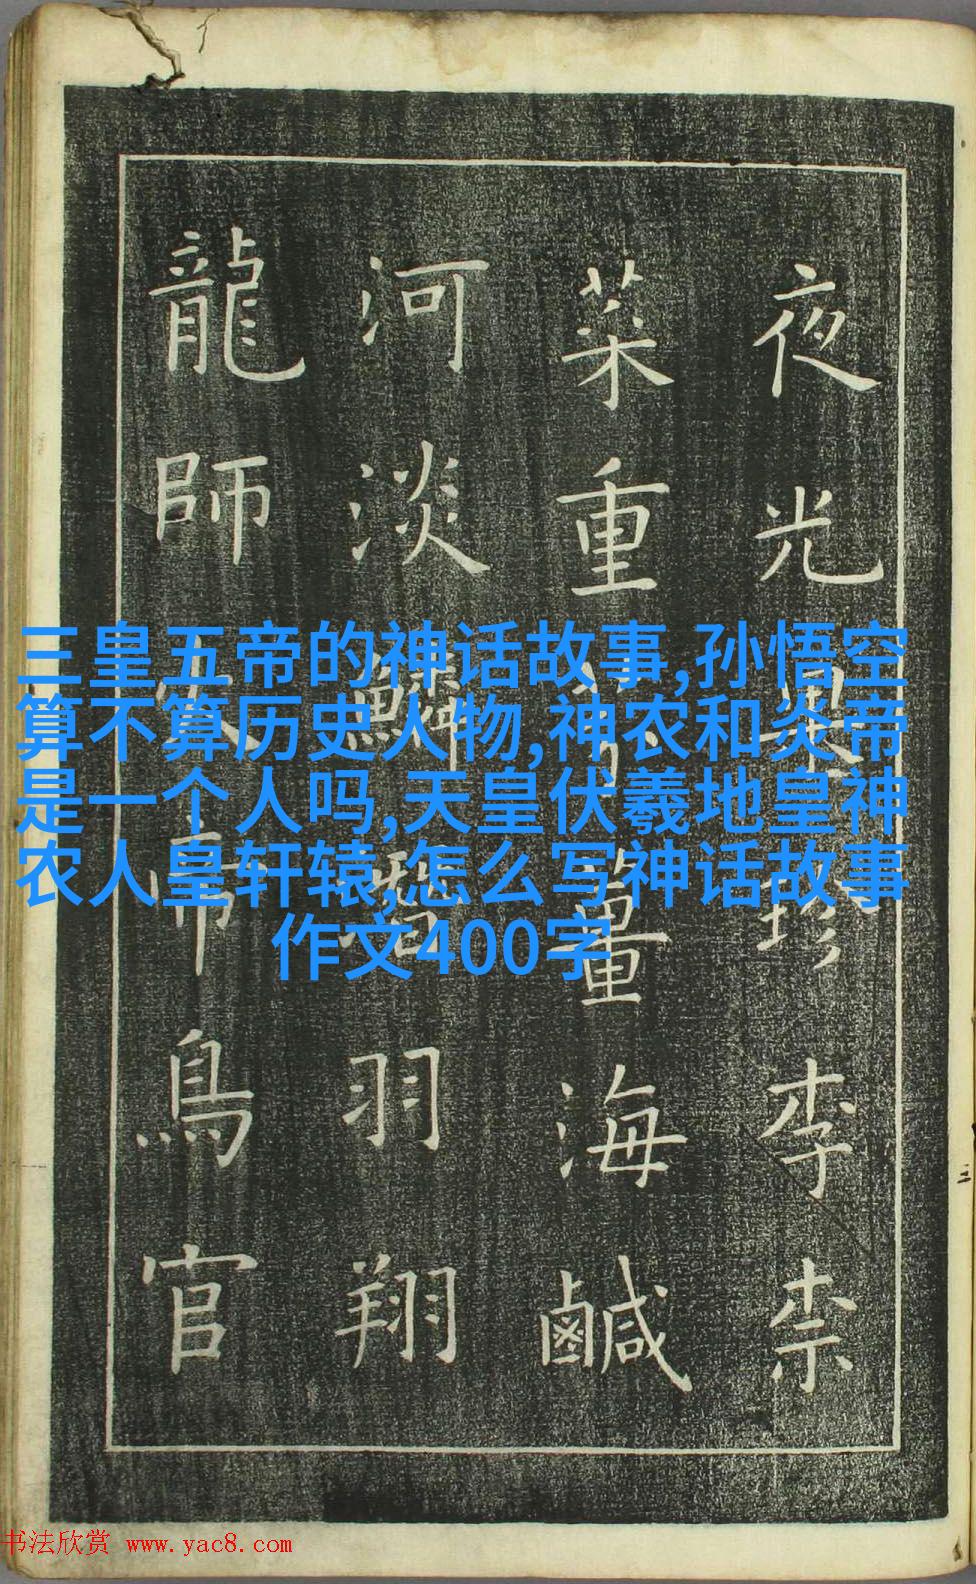 三皇五帝的神话故事,孙悟空
算不算历史人物,神农和炎帝
是一个人吗,天皇伏羲地皇神
农人皇轩辕,怎么写神话故事
作文400字
夜光果珍李柰
菜重薑海鹹
河淡鱗潛羽翔
龍師帝鳥官
书法欣赏 www.yac8.com